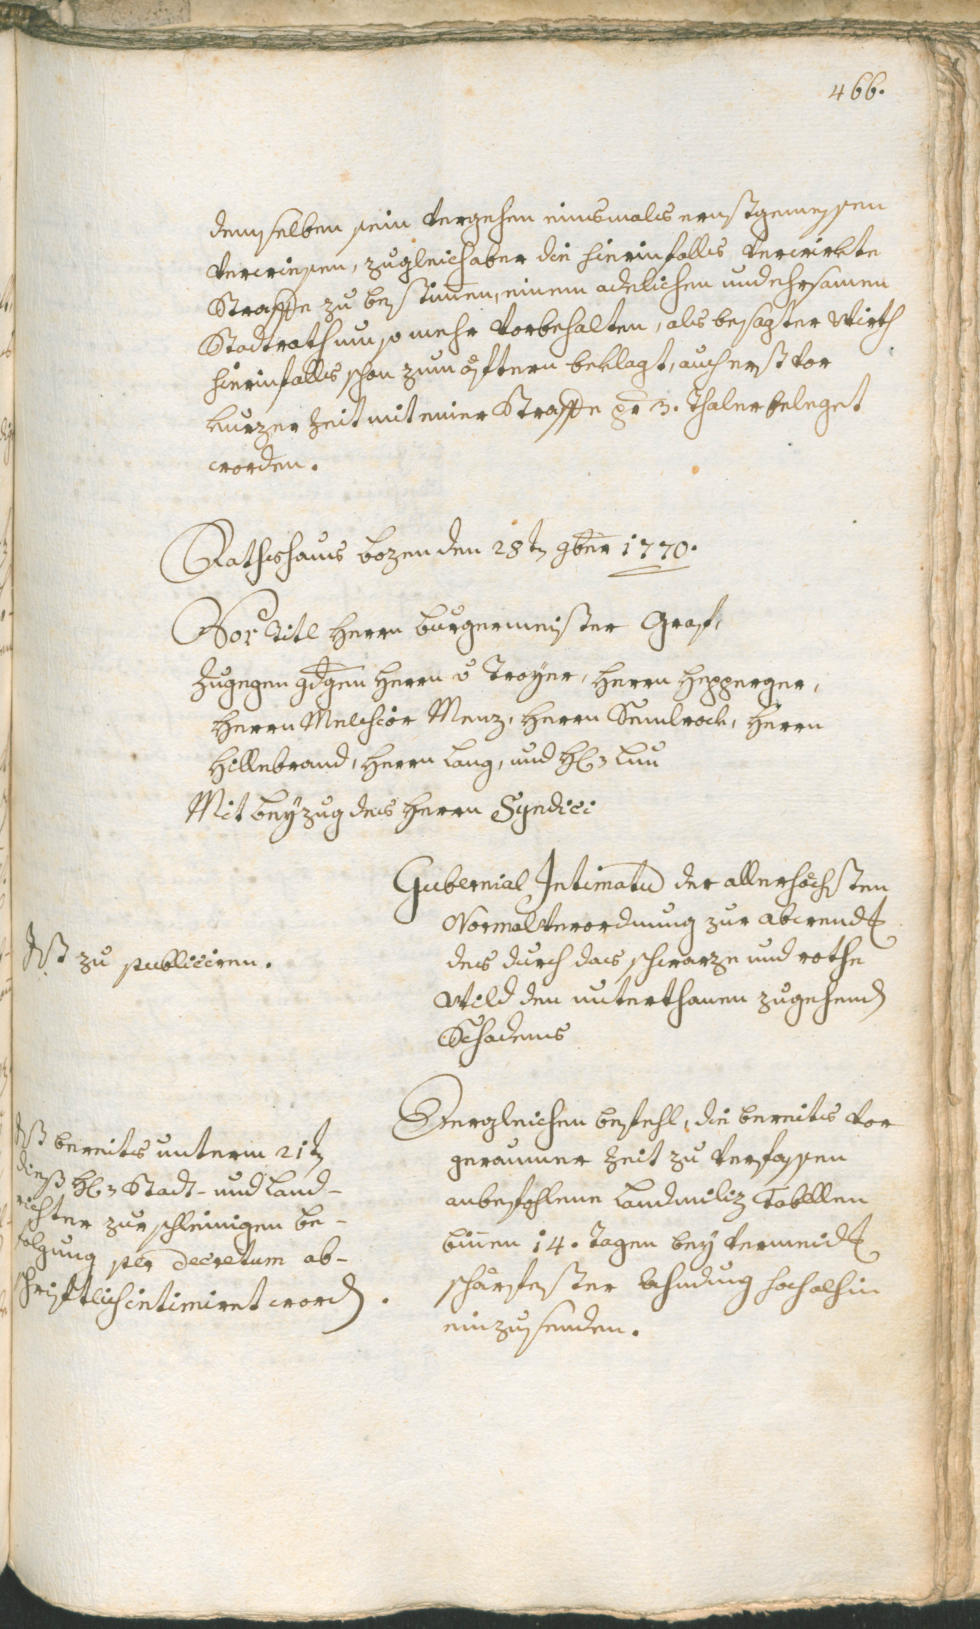 466.
demselben sein Vergehen einsmals ernstgemessen
verwiesen, zugleich aber die hierinfalls verwirkte
Straffe zu bestimmen, einem adelichen und ehrsamen
Stadtrath um so mehr vorbehalten, als besagter Wirth
hierinfalls schon zum öftern beklagt, auch erst vor
kurzer Zeit mit einer Straffe pr 3. Thaler beleget
worden.
Rathshaus Bozen den 28t 9ber 1770.
Vor Titl Herrn Burgermeister Graf,
Zugegen Herrn v Troyer, Herrn Hepperger,
Herrn Melchior Menz, Herrn Semlrock, Herrn
Hillebrand, Herrn Lang, und H:
Mit Beyzug des Herrn Syndici
Gubernial Intimatu der allerhöchsten
Normalverordnung zur Abwend:
des durch das schwarze und rothe
Wild den unterthanen zugehend
Schadens
Ist zu publiciren.
Dergleichen Befehl, die bereits vor
geraumer Zeit zu verfassen
anbefohlene Landmiliz Tabellen
binnen 14. Tagen bey vermeid:
schärfester Ahndung hochalhin
einzusenden.
Ist bereits unterm 21t
dieß H: Stadt- und Land-
richter zur schleinigen Be-
folgung per Decretum ab-
schriftlich intimiret word.